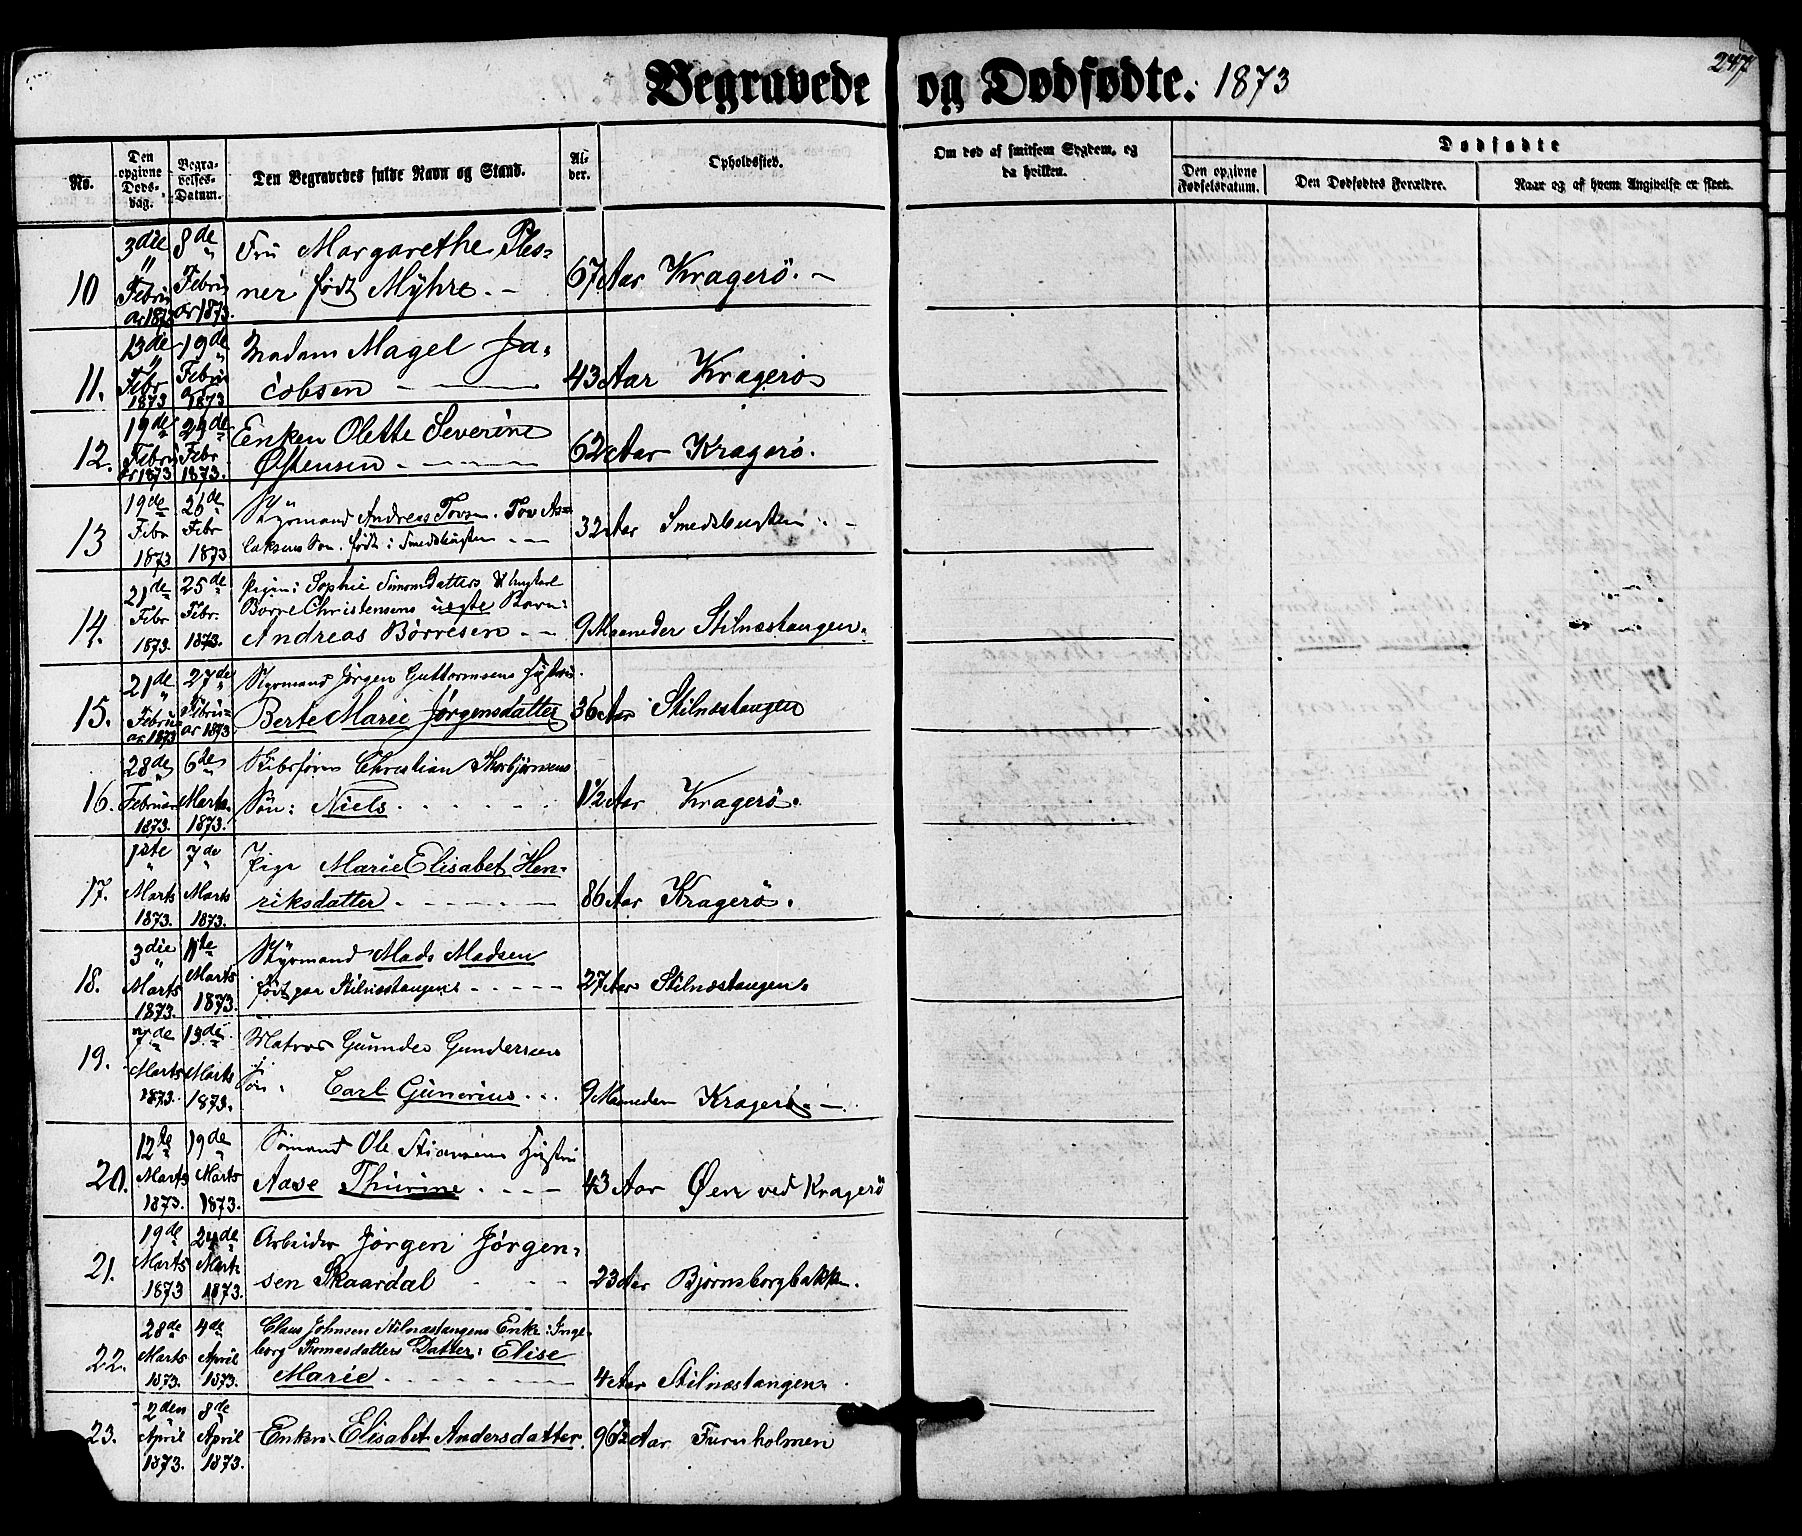 Begravede og Dødfødte. 1873
247
No.
Den opgivne Døds-dag.
Begra-velses-Datum.
Den Begravedes fulde Navn og Stand.
Al-der.
Opholdssted.
Om død af smitsom Sygdom, og da hvilken.
Dødfødte
Den opgivne Fødselsdatum.
Den Dødfødtes Forældre.
Naar og af hvem Angivelse er skeet.
10 3die Februar 1873 8de Februar 1873. Fru Margarethe Ples-
ner født Myhre. - 67 Aar Kragerö. -
11. 13de Febr 1873 19de Febru 1873 Madam Magel Ja-
cobsen 43 Aar Kragerö
12. 19de Febru ar 1873 24de Febr 1873. Enken Olette Severine
Østensen 62 Aar Kragerö.
13 19de Febr 1873 26de Febr 1873 Styrmand Andreas Tovsen. Tov As-
laksens Søn. født i Smedsbugten 32 Aar Smedsbugten
14. 21de Febr 1873. 25de Febr. 1873. Pigen: Sophie Simonsdatters &
Børre Christensens uegte Barn:
Andreas Börresen 9 Maaneder Stilnæstangen.
15. 21de Februar 1873 27de Februar 1873 Styrmand Jørgen Guttormsens Hustru
Berte Marie Jørgensdatter 36 Aar Stilnæstangen
16. 28de Februar 1873. 6te Marts 1873. Skibsfører Christian Thorbjørnsens
Søn: Niels. 1 1/2 Aar Kragerö.
17. 1ste Marts 1873. 7de Marts 1873. Pige Marie Elisabet Hen-
riksdatter 86 Aar Kragerö.
18. 3die Marts 1873. 11te Marts 1873. Styrmand Mads Madsen
født paa Stilnæstangen 27 Aar Stilnæstangen.
19. 7de Marts 1873. 13de Marts 1873. Matros Gunder Gundersens
Søn. Carl Gunerius 9 Maaneder Kragerö. -
20. 12te Marts 1873. 19de Marts 1873. Sømand Ole Stiansens Hustru
Aase Thurine 43 Aar Øen ved Kragerö
21. 19de Marts 1873 24de Marts 1873. Arbeider Jørgen Jørgen-
sen Skaardal 23 Aar Bjørnsborgbakk.
22. 28de Marts 1873. 4de April 1873. Claus Johnsen Stilnæstangens Enke: Inge-
borg Thomasdatters Datter: Elise
Marie 4 Aar Stilnæstangen.
23. 2den April 1873. 8de April 1873. Enken Elisabet Andersdatter. 96 1/2 Aar Furuholmen